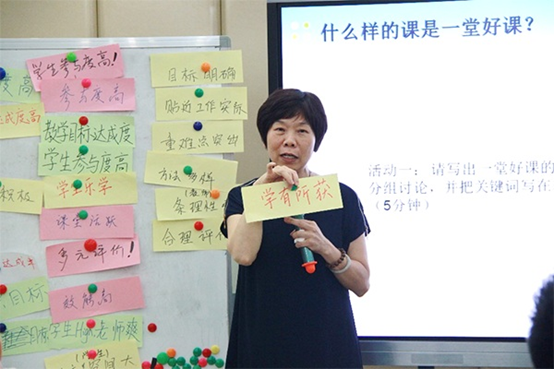 什么样的课是一堂好课？
活动一：请写出一堂好课的
分组讨论，并把关键词写在
（5分钟）
学有所获
学生参与度高！
参与度高
教学目标达成度
学生参与度高
学生乐学
课堂活跃
多元评价！
效能高
学生High老师爽
目标明确
贴近工作实际
重难点突出
条理性
合理评价
度高
达成度高
积极
目标